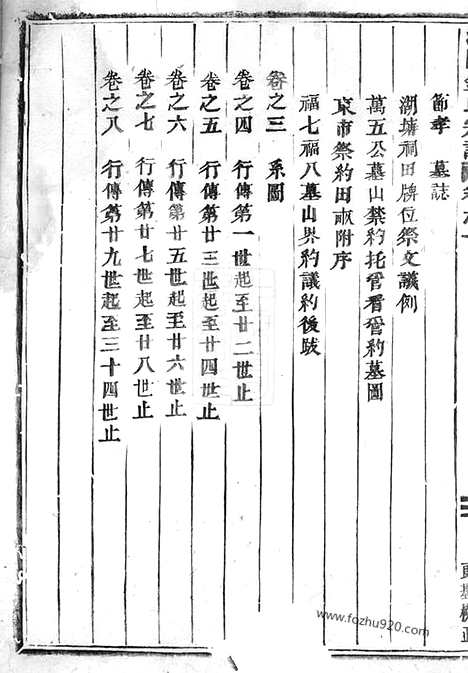 節孝 墓誌
湖塘祠田牌位祭文議例
萬五公墓山禁約托管看管約墓圖
東市祭約田畝附序
福七福八墓山界約議約後跋
卷之三 系圖
卷之四 行傳第一世起至廿二世止
卷之五 行傳第廿三世起至廿四世止
卷之六 行傳第廿五世起至廿六世止
卷之七 行傳第廿七世起至廿八世止
卷之八 行傳第廿九世起至三十四世止
www.fozhu920.com